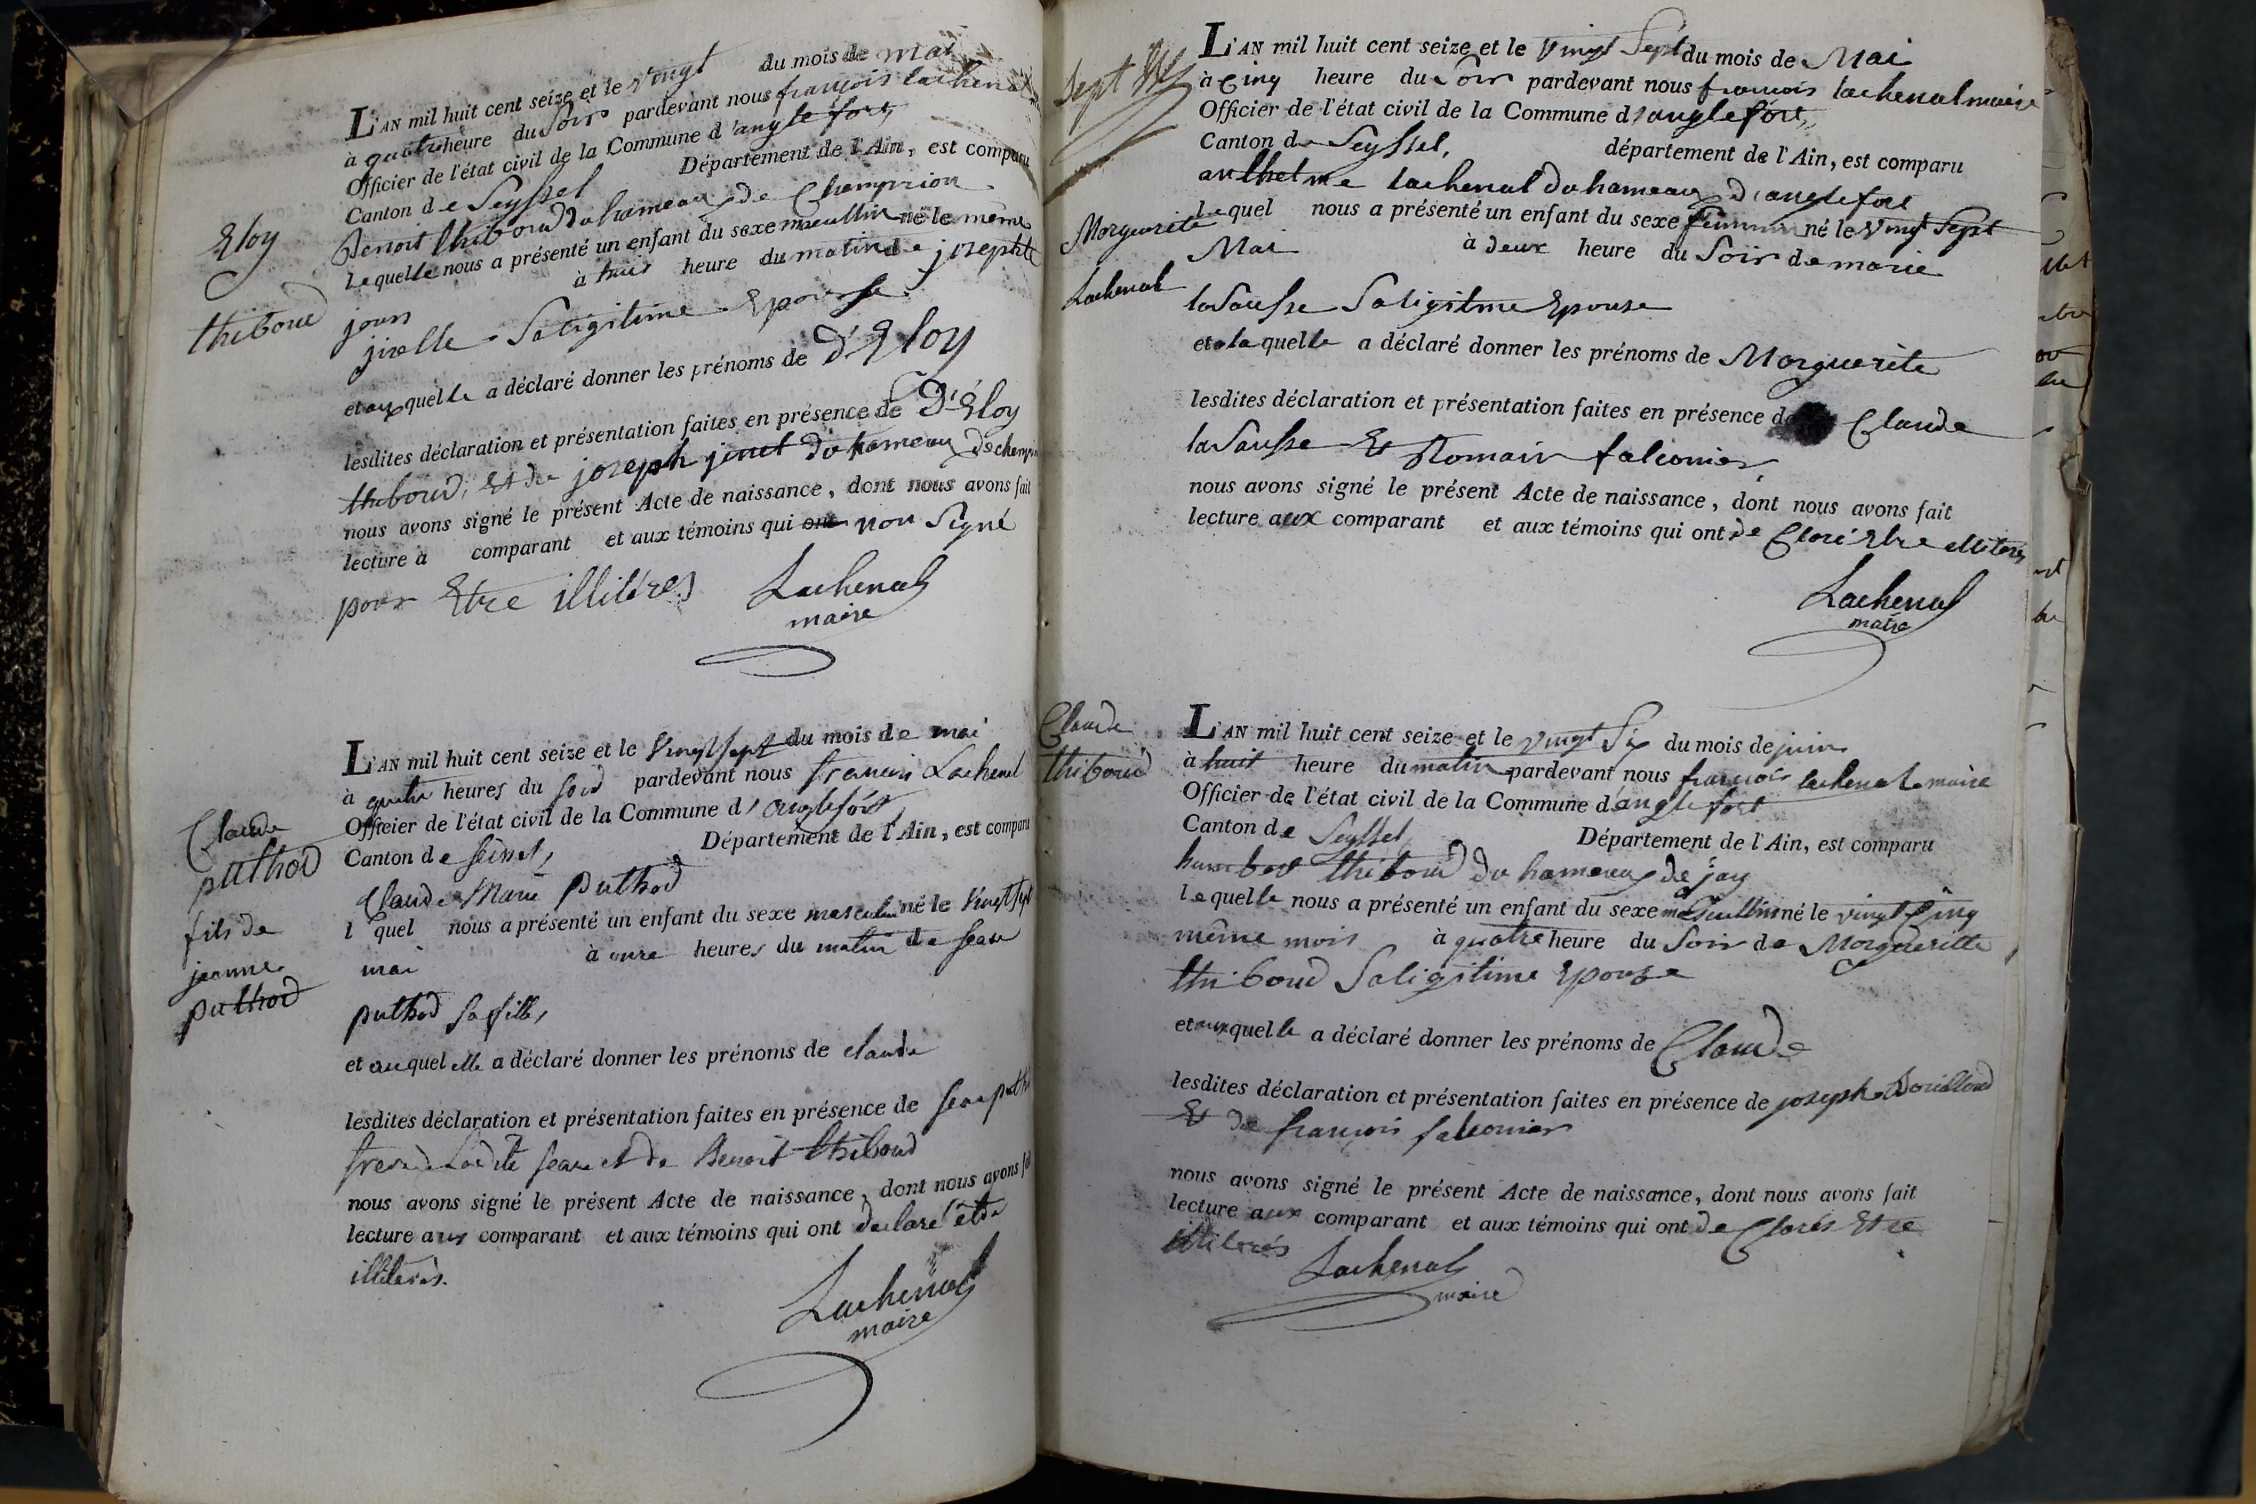 L'AN mil huit cent seize et le vingt du mois de mai
à quatre heure du Soir pardevant nous françois lachenal
Officier de l'état civil de la Commune d'anglefort,
Canton de Seyssel Département de l'Ain, est comparu
Benoit thiboud du hameaux de
Lequelle nous a présenté un enfant du sexe masculin né le même
jour à huit heure du matin de josephte
Sa ligitime Epouse
et auquelle a déclaré donner les prénoms de d'Eloy
lesdites déclaration et présentation faites en présence de D'Eloy
thiboud, Et de joseph jinet du hameaux
nous avons signé le présent Acte de naissance, dont nous avons fait
lecture à comparant et aux témoins qui ont non Signé
pour Etre illitéres
Lachenal
maire
Eloy
thiboud
L'AN mil huit cent seize et le Vingt sept du mois de mai
à quatre heures du soir pardevant nous francois Lachenal
Officier de l'état civil de la Commune d'anglefort,
Canton de Département de l'Ain, est comparu
Claude Marie puthod
l quel nous a présenté un enfant du sexe masculin né le Vingt sept
mai à onze heures du matin de jeane
puthod sa fille,
et auquel elle a déclaré donner les prénoms de claude
lesdites déclaration et présentation faites en présence de
frere de Ladite jeane et de Benoit thiboud
nous avons signé le présent Acte de naissance, dont nous avons fait
lecture aux comparant et aux témoins qui ont declaré être
illiterés.
Lachenal
maire
Claude
puthod
fils de
jeanne
puthod
Sept
L'AN mil huit cent seize et le Vingt Sept du mois de Mai
à Cinq heure du Soir pardevant nous francois lachenal maire
Officier de l'état civil de la Commune d'anglefort,
Canton de Seyssel, département de l'Ain, est comparu
anthelme lachenal du hameaux d'anglefort
Lequel nous a présenté un enfant du sexe feminin né le Vingt Sept
Mai à deux heure du Soir de marie
la Sausse Sa ligitme Epouse
et a laquelle a déclaré donner les prénoms de Morguerite
lesdites déclaration et présentation faites en présence de Claude
la Sausse Et Romain falconier
nous avons signé le présent Acte de naissance, dont nous avons fait
lecture aux comparant et aux témoins qui ont de Claré Etre
Lachenal
maire
Morguerite
Lachenal
L'AN mil huit cent seize et le vingt Six du mois de juin
à huit heure du matin pardevant nous francois lachenal maire
Officier de l'état civil de la Commune d'anglefort
Canton de Seyssel, Département de l'Ain, est comparu
humbert thiboud du hameaux de jay
Lequelle nous a présenté un enfant du sexe masculin né le vingt Cinq
même mois à quatre heure du Soir de Morgueritte
thiboud Sa ligitime Epouse
et auxquelle a déclaré donner les prénoms de Claude
lesdites déclaration et présentation faites en présence de joseph
Et de françois falconier
nous avons signé le présent Acte de naissance, dont nous avons fait
lecture aux comparant et aux témoins qui ont de Clarés Etre
Lachenal
maire
Claude
thiboud